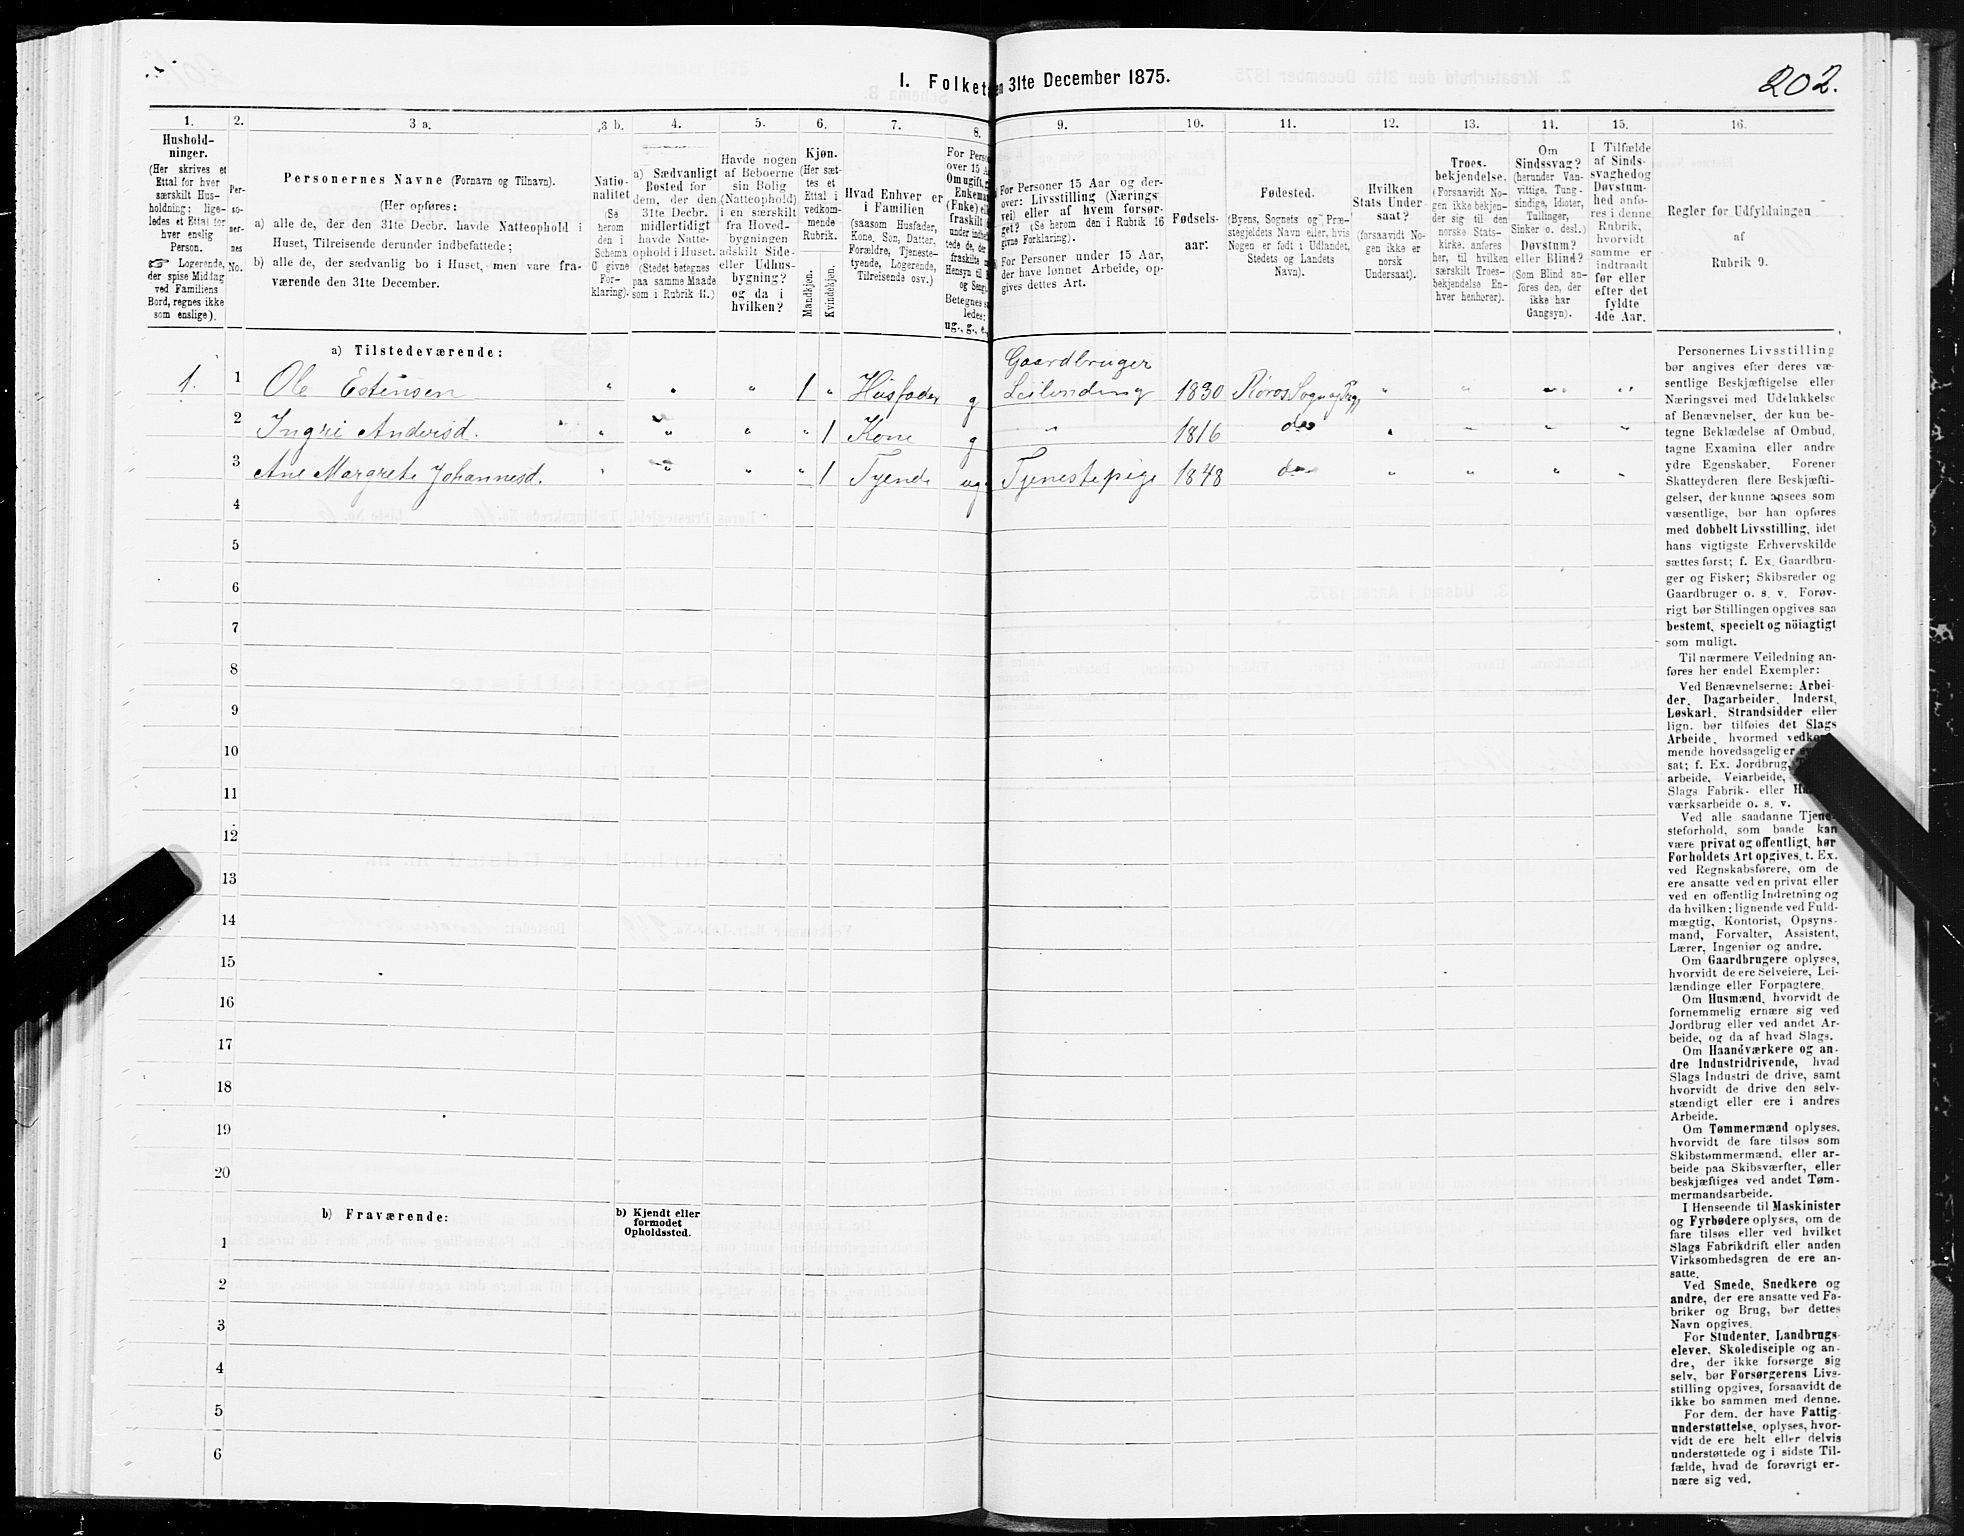 I. Folket
en 31te December 1875.
202.
1.
Hushold-
ninger.
(Her skrives et
Ettal for hver
særskilt Hus-
holdning; lige-
ledes et Ettal for
hver enslig
Person.
☞ Logerende,
der spise Middag
ved Familiens
Bord, regnes ikke
som enslige).
2.
Per-
so-
ner-
nes
No.
3 a.
Personernes Navne (Fornavn og Tilnavn).
(Her opføres:
a) alle de, der den 31te Decbr. havde Natteophold i
Huset, Tilreisende derunder indbefattede;
b) alle de, der sædvanlig bo i Huset, men vare fra-
værende den 31te December.
3 b.
Natio-
nalitet
(Se
herom
den i
Schema
C givne
For-
klaring).
4.
a) Sædvanligt
Bosted for
dem, der den
31te Decbr.
midlertidigt
havde Natte-
ophold i Huset.
(Stedet betegnes
paa samme Maade
som i Rubrik 11.)
5.
Havde nogen
af Beboerne
sin Bolig
(Natteophold)
i en særskilt
fra Hoved-
bygningen
adskilt Side-
eller Udhus-
bygning?
og da i
hvilken?
6.
Kjøn.
(Her sæt-
tes et
Ettal i
vedkom-
mende
Rubrik.
Mandkjøn.
Kvindekjøn.
7.
Hvad Enhver er
i Familien
(saasom Husfader,
Kone, Søn, Datter,
Forældre, Tjeneste-
tyende, Logerende,
Tilreisende osv.)
8.
For Perso
over 15 A
Om ugift, g
Enkema
(Enke) el
fraskilt
under indbe
tede de, de
fraskilte
Hensyn til
og Seng
Betegnes s
ledes:
ug., g., e.,
9.
For Personer 15 Aar og der-
over: Livsstilling (Nærings-
vei) eller af hvem forsør-
get? (Se herom den i Rubrik 16
givne Forklaring).
For Personer under 15 Aar,
der have lønnet Arbeide, op-
gives dettes Art.
10.
Fødsels-
aar:
11.
Fødested.
(Byens, Sognets og Præ-
stegjeldets Navn eller, hvis
Nogen er født i Udlandet,
Stedets og Landets
Navn).
12.
Hvilken
Stats Under-
saat?
(forsaavidt No-
gen ikke er
norsk
Undersaat).
13.
Troes-
bekjendelse.
(Forsaavidt No-
gen ikke bekjen-
der sig til den
norske Stats-
kirke, anføres
her, til hvilken
særskilt Troes-
bekjendelse En-
hver henhører).
14.
Om
Sindssvag?
(herunder Van-
vittige, Tung-
sindige, Idioter,
Tullinger,
Sinker o. desl.)
Døvstum?
eller Blind?
(Som Blind an-
føres den, der
ikke har
Gangsyn).
15.
I Tilfælde
af Sinds-
svaghed og
Døvstum-
hed anfø-
res i denne
Rubrik,
hvorvidt
samme er
indtraadt
før eller
efter det
fyldte
4de Aar.
16.
Regler for Udfyldningen
af
Rubrik 9.
a) Tilstedeværende:
Gaardbruger
1. 1 Ole Estensen " " " 1 " Husfader g Leilending 1830 Röros Sogn og Prg " " " "
2 Ingri Andersd. " " " " 1 Kone g " 1816 do " " " "
3 Ane Margrete Johannesd. " " " " 1 Tyende ug. Tjenestepige 1848 do " " " "
4
5
6
7
8
9
10
11
12
13
14
15
16
17
18
19
20
b) Fraværende:
b) Kjendt eller
formodet
Opholdssted.
1
2
3
4
5
6
Personernes Livsstilling
bør angives efter deres væ-
sentlige Beskjæftigelse eller
Næringsvei med Udelukkelse
af Benævnelser, der kun be-
tegne Beklædelse af Ombud,
tagne Examina eller andre
ydre Egenskaber. Forener
Skatteyderen flere Beskjæfti-
gelser, der kunne ansees som
væsentlige, bør han opføres
med dobbelt Livsstilling, idet
hans vigtigste Erhvervskilde
sættes først; f. Ex. Gaardbru-
ger og Fisker; Skibsreder og
Gaardbruger o. s. v. Forøv-
rigt bør Stillingen opgives saa
bestemt, specielt og nöiagtigt
som muligt.
Til nærmere Veiledning an-
føres her endel Exempler:
Ved Benævnelserne: Arbei-
der, Dagarbeider, Inderst,
Løskarl, Strandsidder eller
lign. bør tilføies det Slags
Arbeide, hvormed vedkom-
mende hovedsagelig er
sat; f. Ex. Jordbrug,
arbeide, Veiarbeide,
Slags Fabrik- eller
værksarbeide o. s. v.
Ved alle saadanne Tjene-
steforhold, som baade kan
være privat og offentligt, bør
Forholdets Art opgives, t. Ex.
ved Regnskabsførere, om de
ere ansatte ved en privat eller
ved en offentlig Indretning og
da hvilken; lignende ved Fuld-
mægtig, Kontorist, Opsyns-
mand, Forvalter, Assistent,
Lærer, Ingeniør og andre.
Om Gaardbrugere oplyses,
hvorvidt de ere Selveiere, Lei-
lændinge eller Forpagtere.
Om Husmænd, hvorvidt de
fornemmelig ernære sig ved
Jordbrug eller ved andet Ar-
beide, og da af hvad Slags.
Om Haandværkere og an-
dre Industridrivende, hvad
Slags Industri de drive, samt
hvorvidt de drive den selv-
stændigt eller ere i andres
Arbeide.
Om Tømmermænd oplyses,
hvorvidt de fare tilsøs som
Skibstømmermænd, eller ar-
beide paa Skibsværfter, eller
beskjæftiges ved andet Tøm-
mermandsarbeide.
I Henseende til Maskinister
og Fyrbødere oplyses, om de
fare tilsøs eller ved hvilket
Slags Fabrikdrift eller anden
Virksomhedsgren de ere an-
satte.
Ved Smede, Snedkere og
andre, der ere ansatte ved Fa-
briker og Brug, bør dettes
Navn opgives.
For Studenter, Landbrugs-
elever, Skoledisciple og an-
dre, der ikke forsørge sig
selv, bør Forsørgerens Livs-
stilling opgives, forsaavidt de
ikke bo sammen med denne.
For dem, der have Fattig-
understøttelse, oplyses, hvor-
vidt de ere helt eller delvis
understøttede og i sidste Til-
fælde, hvad de forøvrigt er-
nære sig ved.